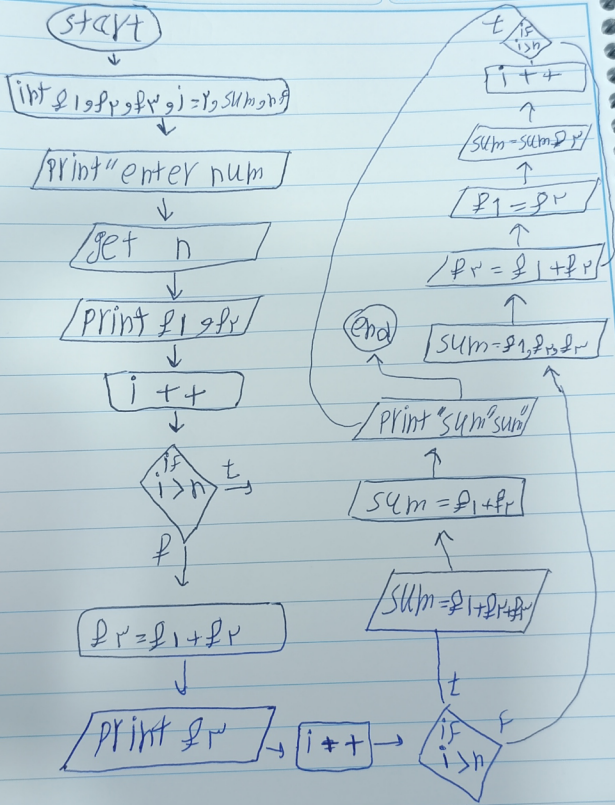 start
int f1,f۲,f۳,i=۲,sum,n;
print"enter num
get n
print f1,f۲
i ++
if
i>n
t
f
f۳=f1+f۲
print f۳
i ++
if
i>n
t
F
sum=f1+f۲+f۳
sum=f1+f۲
print"sum"sum"
end
sum=f1,f۲,f۳
f۲=f1+f۲
f1=f۲
i++
if
i>n
t